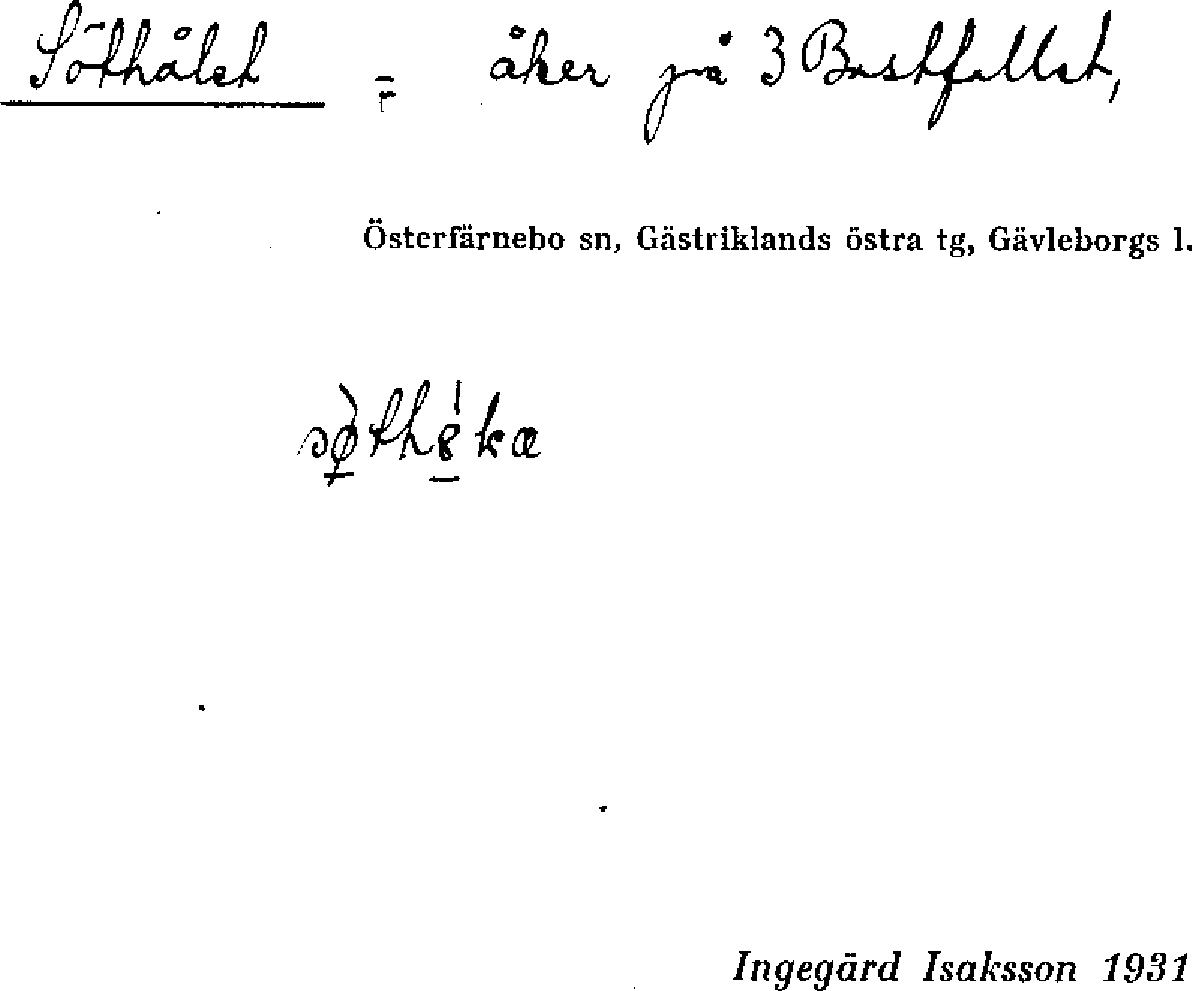 Söthålet = åker på 3 Bastfallet,
Österfärnebo sn, Gästriklands östra tg, Gävleborgs l.
Ingegärd Isaksson 1931